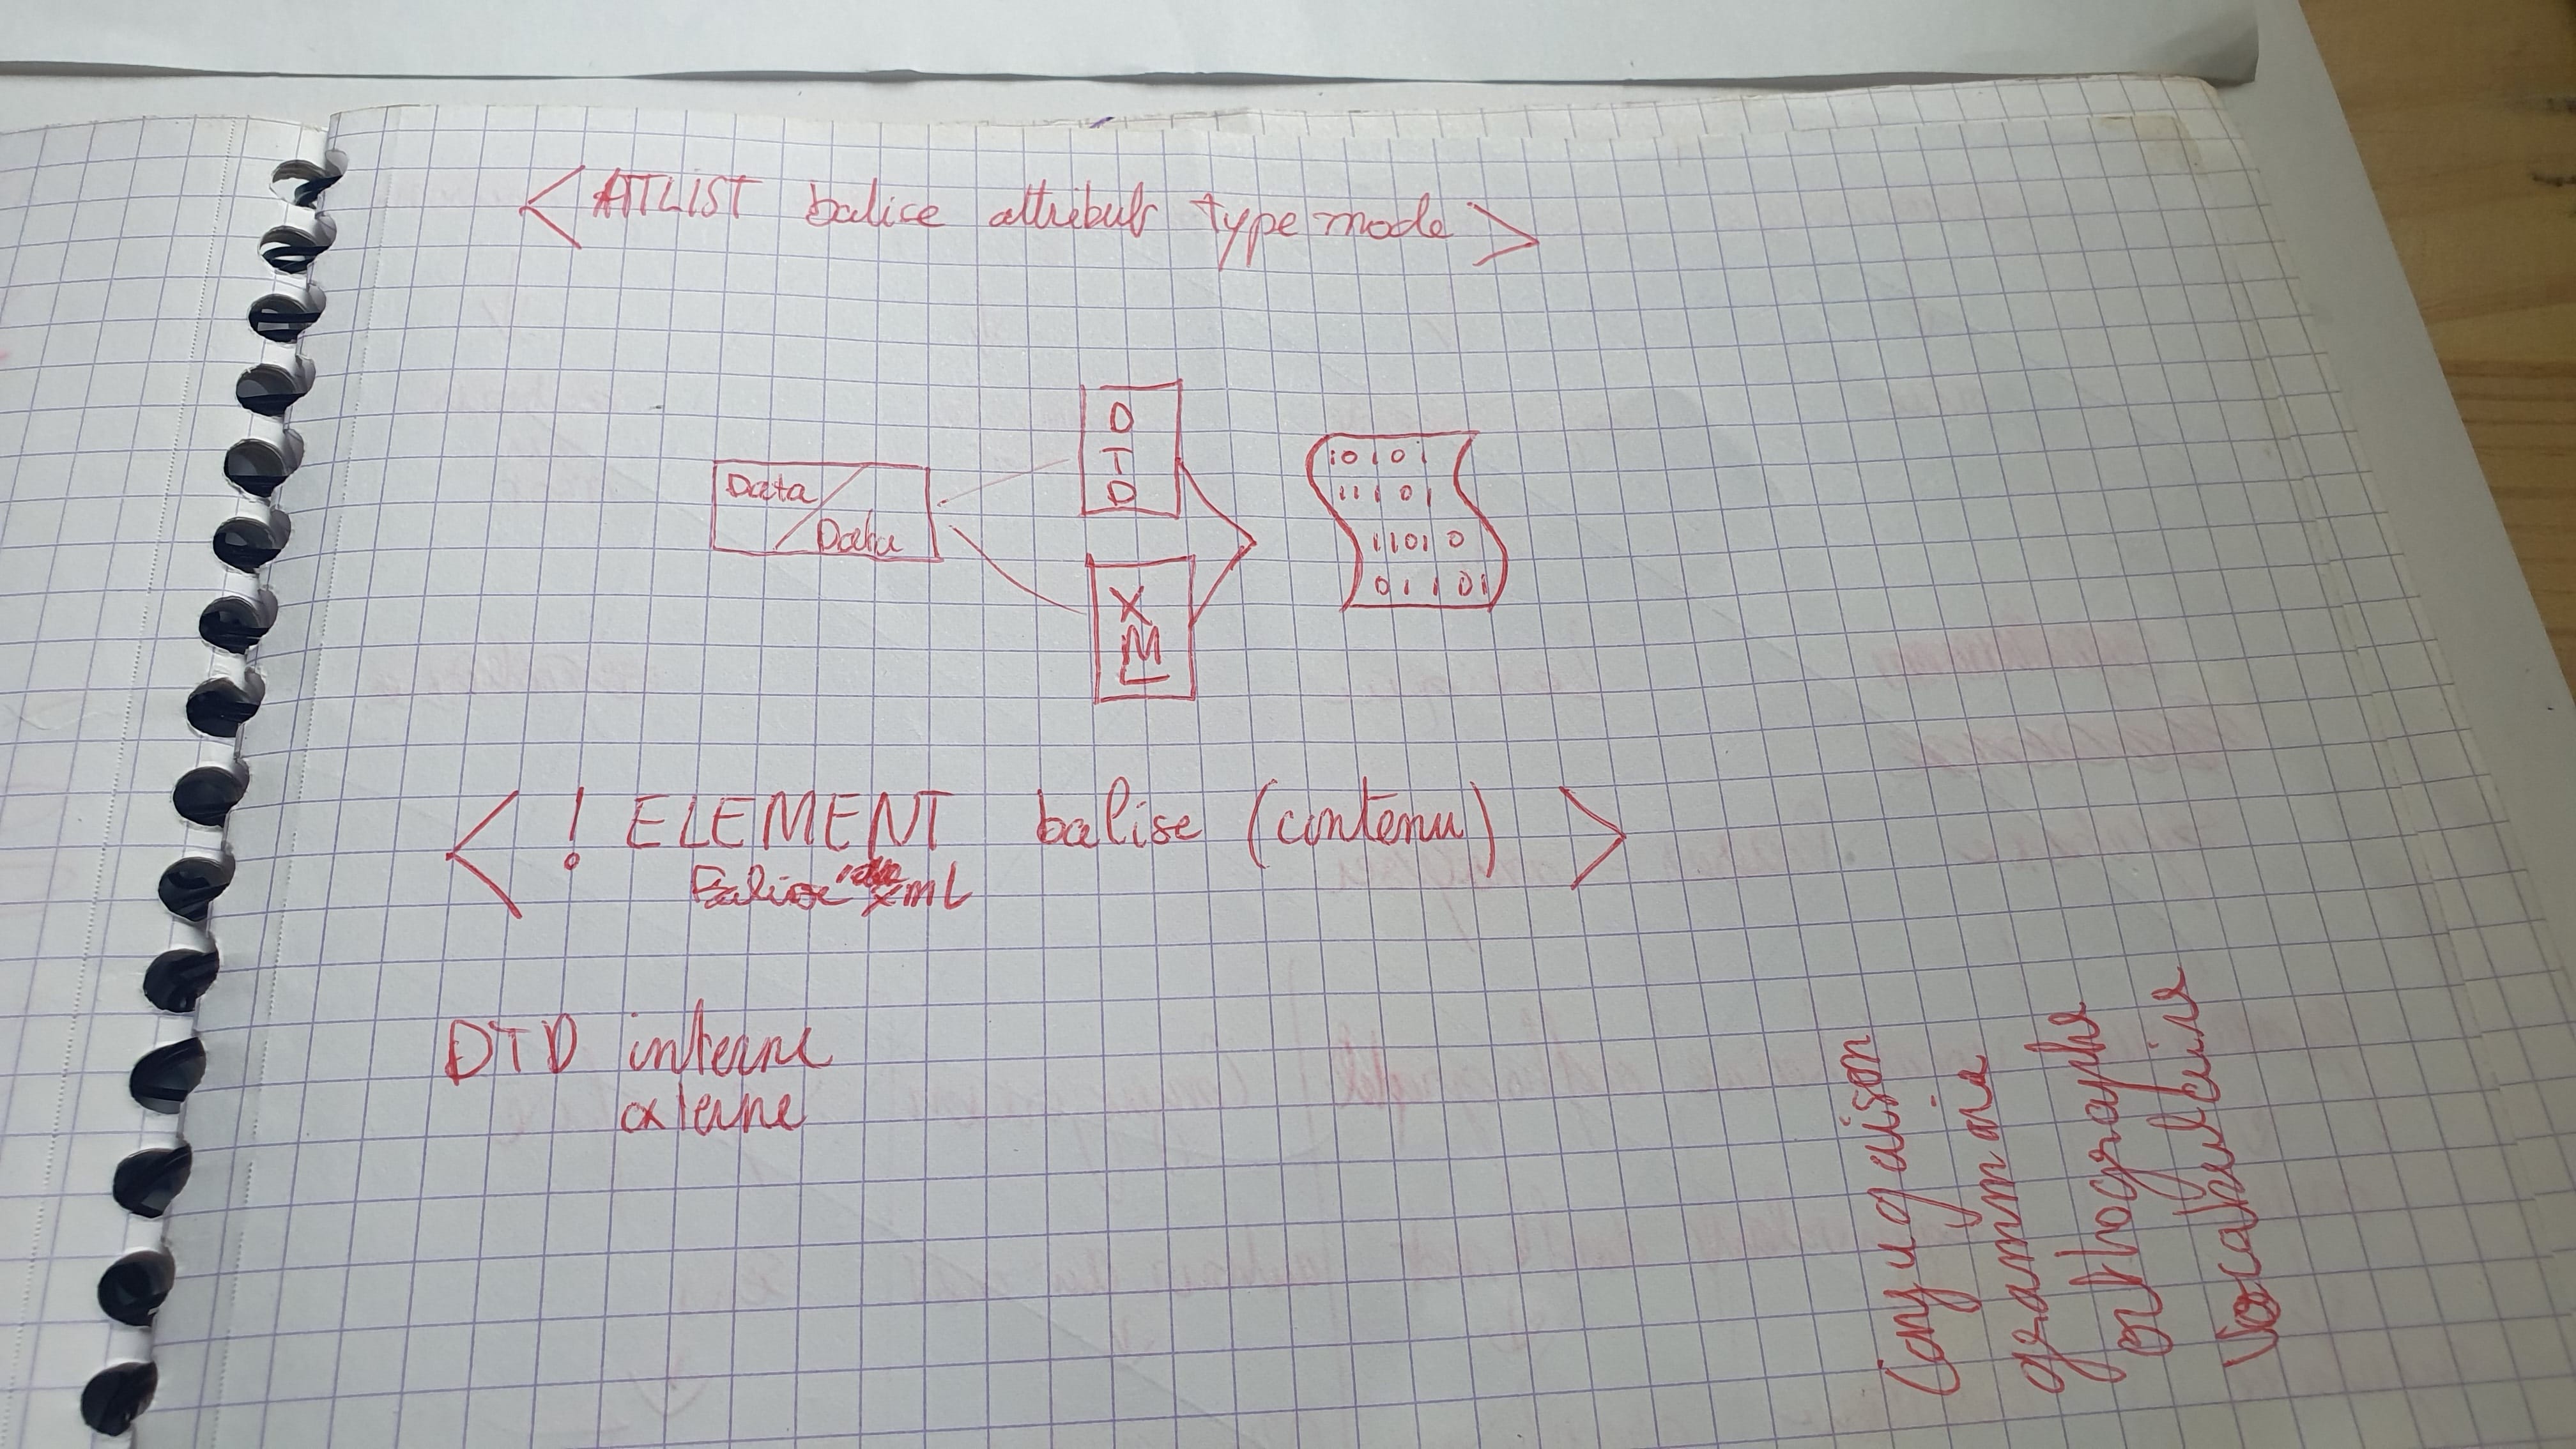 <ATLIST balise attribut type mode>
Data
Data
DTD
XML
10101
11101
11010
01101
<! ELEMENT balise (contenu) >
Balise xml
DTD interne
externe
Conjugaison
grammaire
orthographe
Vocabulaire